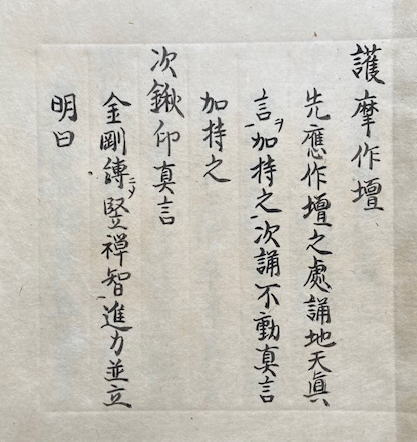 護摩作壇
先應作壇之處誦地天真
言ヲ加持之次誦不動真言
加持之
次鍬印真言
金剛縛ニシテ竪禅智進力並立
明曰